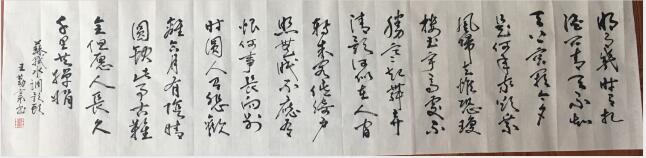 明月幾时有把
酒问青天不知
天上宫阙今夕
是何年我欲乘
风归去惟恐琼
楼玉宇高处不
胜寒起舞弄
清影何似在人间
转朱阁低绮户
照无眠不应有
恨何事长向别
时圆人有悲欢
离合月有阴晴
圆缺此事古难
全但愿人长久
千里共婵娟
苏轼水调歌头